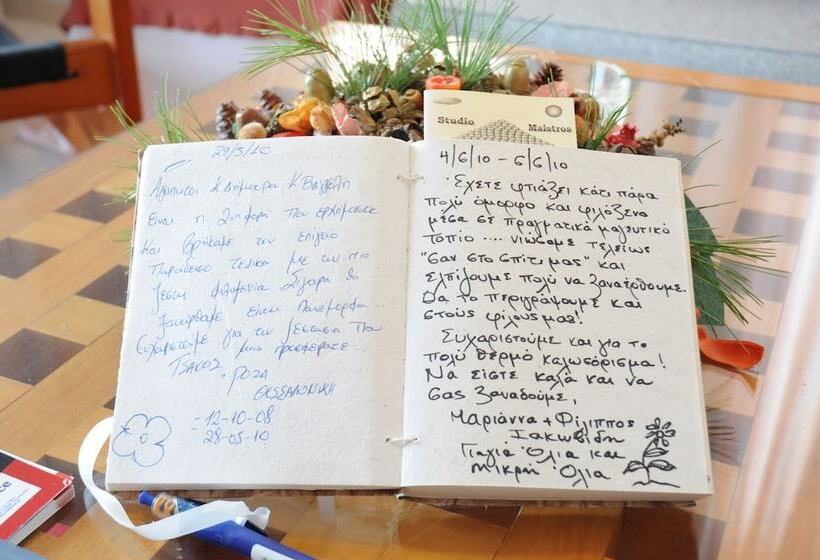 Studio
Maistros
29/5/10
Αγαπητοί κ Δήμητρα κ Βαγγέλη
Είναι η 2η φορά που ερχόμαστε
και βρήκαμε τον επίγειο
Παράδεισο τελικά με την πιο
ζεστή φιλοξενία Σίγουρα θα
ξανάρθουμε είναι πανέμορφα...
Ευχαριστούμε για την ζεστασιά που
μας προσφέρατε...
ΤΣΑΚΟΣ
ΡΟΖΑ
ΘΕΣΣΑΛΟΝΙΚΗ
= 12-10-08
28-05-10
4/6/10 - 6/6/10
Έχετε φτιάξει κάτι πάρα
πολύ όμορφο και φιλόξενο
μέσα σε πραγματικά μαγευτικό
τοπίο .... νιώσαμε τελείως
"σαν στο σπίτι μας" και
ελπίζουμε πολύ να ξαναέρθουμε.
Θα το περιγράψουμε και
στους φίλους μας!
Ευχαριστούμε και για το
πολύ θερμό καλωσόρισμα!
Να είστε καλά και να
σας ξαναδούμε,
Μαριάννα + Φίλιππος
Ιακωβίδη
Γιαγιά Όλια και
μικρή Όλια